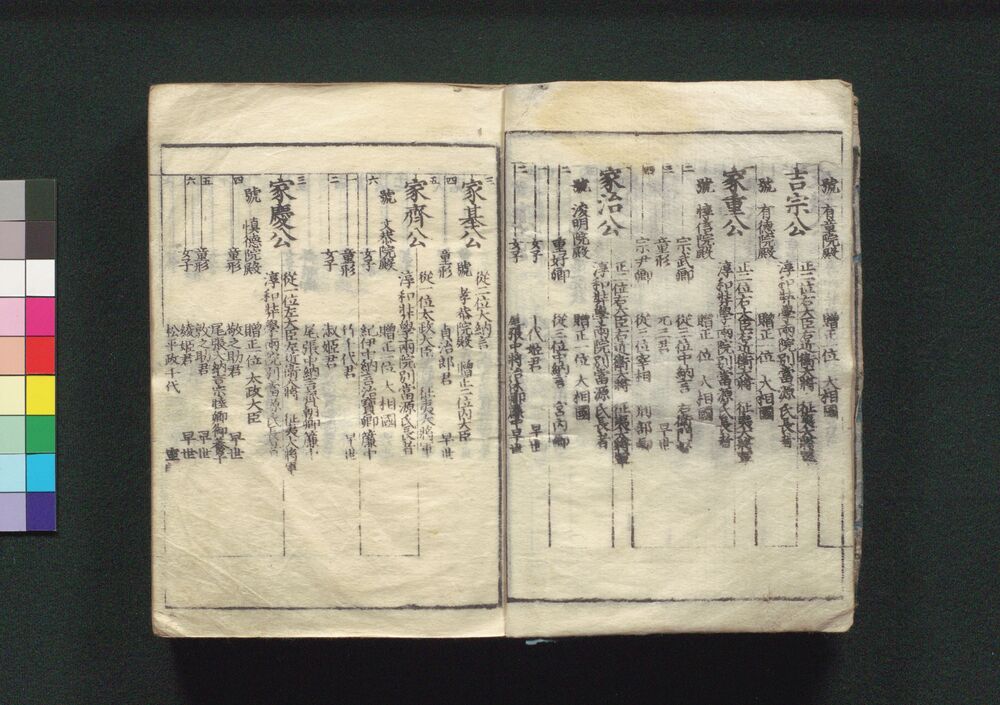 號 有章院殿 贈正一位 大相國
吉宗公 正二位右大臣右近衛大將 征夷大將軍
淳和奨學兩院別當源氏長者
號 有徳院殿 贈正一位 大相國
家重公 正二位右大臣右近衛大將 征夷大將軍
淳和奨學兩院別當源氏長者
號 惇信院殿 贈正一位 大相國
二 宗武卿 從三位中納言 右衛門督
三 童形 元三君 早世
四 宗尹卿 從三位宰相 刑部卿
家治公 正二位右大臣右近衛大將 征夷大將軍
淳和奨學兩院別當源氏長者
號 浚明院殿 贈正一位 大相國
二 重好卿 從三位中納言 宮内卿
一 女子 千代姫君 早世
二 女子 早世
三
家基公 從二位大納言
號 孝恭院殿 贈正二位内大臣
四 童形 貞治郎君 早世
五
家齊公 從一位太政大臣 征夷大將軍
淳和奨學兩院別當源氏長者
號 文恭院殿 贈正一位 大相國
六 女子 紀伊中納言治寶卿簾中
一 童形 竹千代君 早世
二 女子 淑姫君
尾張中納言齊朝卿簾中
三
家慶公 從一位左大臣左近衛大將 征夷大將軍
淳和奨學兩院別當源氏長者
號 慎徳院殿 贈正一位 太政大臣
四 童形 敬之助君 早世
尾張大納言宗睦卿御養子
五 童形 敦之助君 早世
六 女子 綾姫君 早世
松平政千代